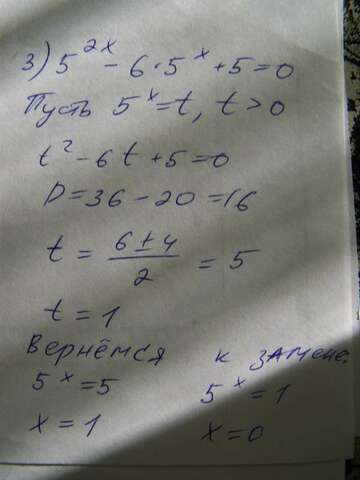 3) 5^2x - 6·5^x + 5 = 0
Пусть 5^x = t, t > 0
t² - 6t + 5 = 0
D = 36 - 20 = 16
t = (6 ± 4)/2 = 5
t = 1
Вернёмся к замене.
5^x = 5 5^x = 1
x = 1 x = 0